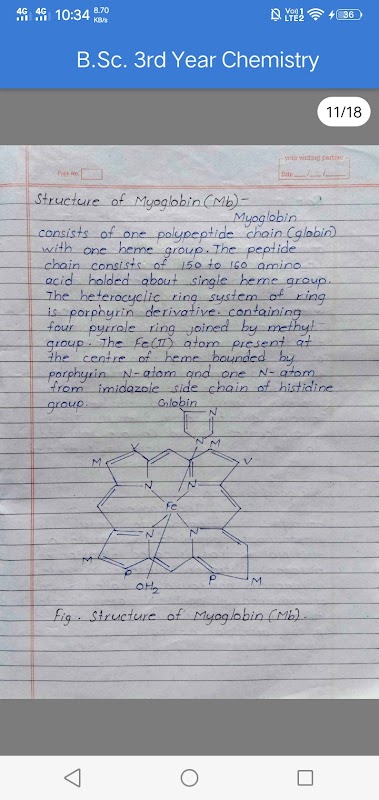 4G 4G 10:34 8.70 KB/s Vo) 1 LTE2 36
B.Sc. 3rd Year Chemistry
11/18
your writing partner
Page No.
Date / /
Structure of Myoglobin (Mb) -
Myoglobin
consists of one polypeptide chain (globin)
with one heme group. The peptide
chain consists of 150 to 160 amino
acid holded about single heme group.
The heterocyclic ring system of ring
is porphyrin derivative containing
four pyrrole ring joined by methyl
group. The Fe(II) atom present at
the centre of heme bounded by
porphyrin N-atom and one N-atom
from imidazole side chain of histidine
group. Globin
N
N
M V M V
N N
Fe
N N
M P P M
OH2
Fig. Structure of Myoglobin (Mb).